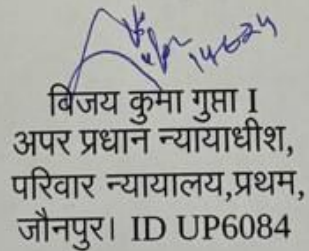 14-6-24
विजय कुमा गुप्ता I
अपर प्रधान न्यायाधीश,
परिवार न्यायालय,प्रथम,
जौनपुर। ID UP6084